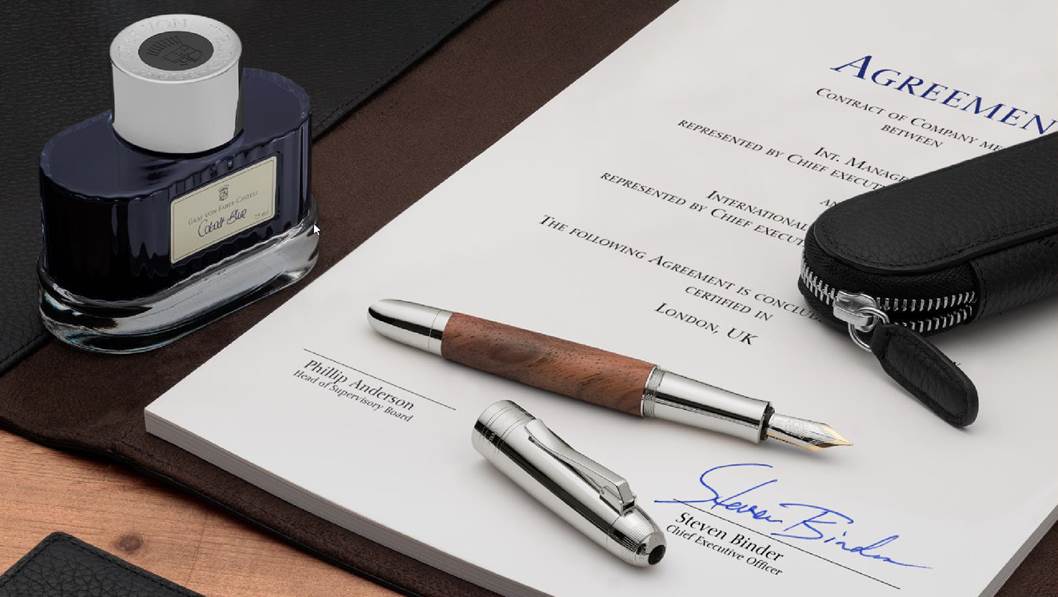 GRAF VON FABER-CASTELL
Cobalt Blue
75 ml
AGREEMEN
CONTRACT OF COMPANY ME
BETWEEN
INT. MANAGE
REPRESENTED BY CHIEF EXECUT
AN
INTERNATIONAL
REPRESENTED BY CHIEF EXECUT
THE FOLLOWING AGREEMENT IS CONCLU
CERTIFIED IN
LONDON, UK
Phillip Anderson
Head of Supervisory Board
Steven Binder
Steven Binder
Chief Executive Officer